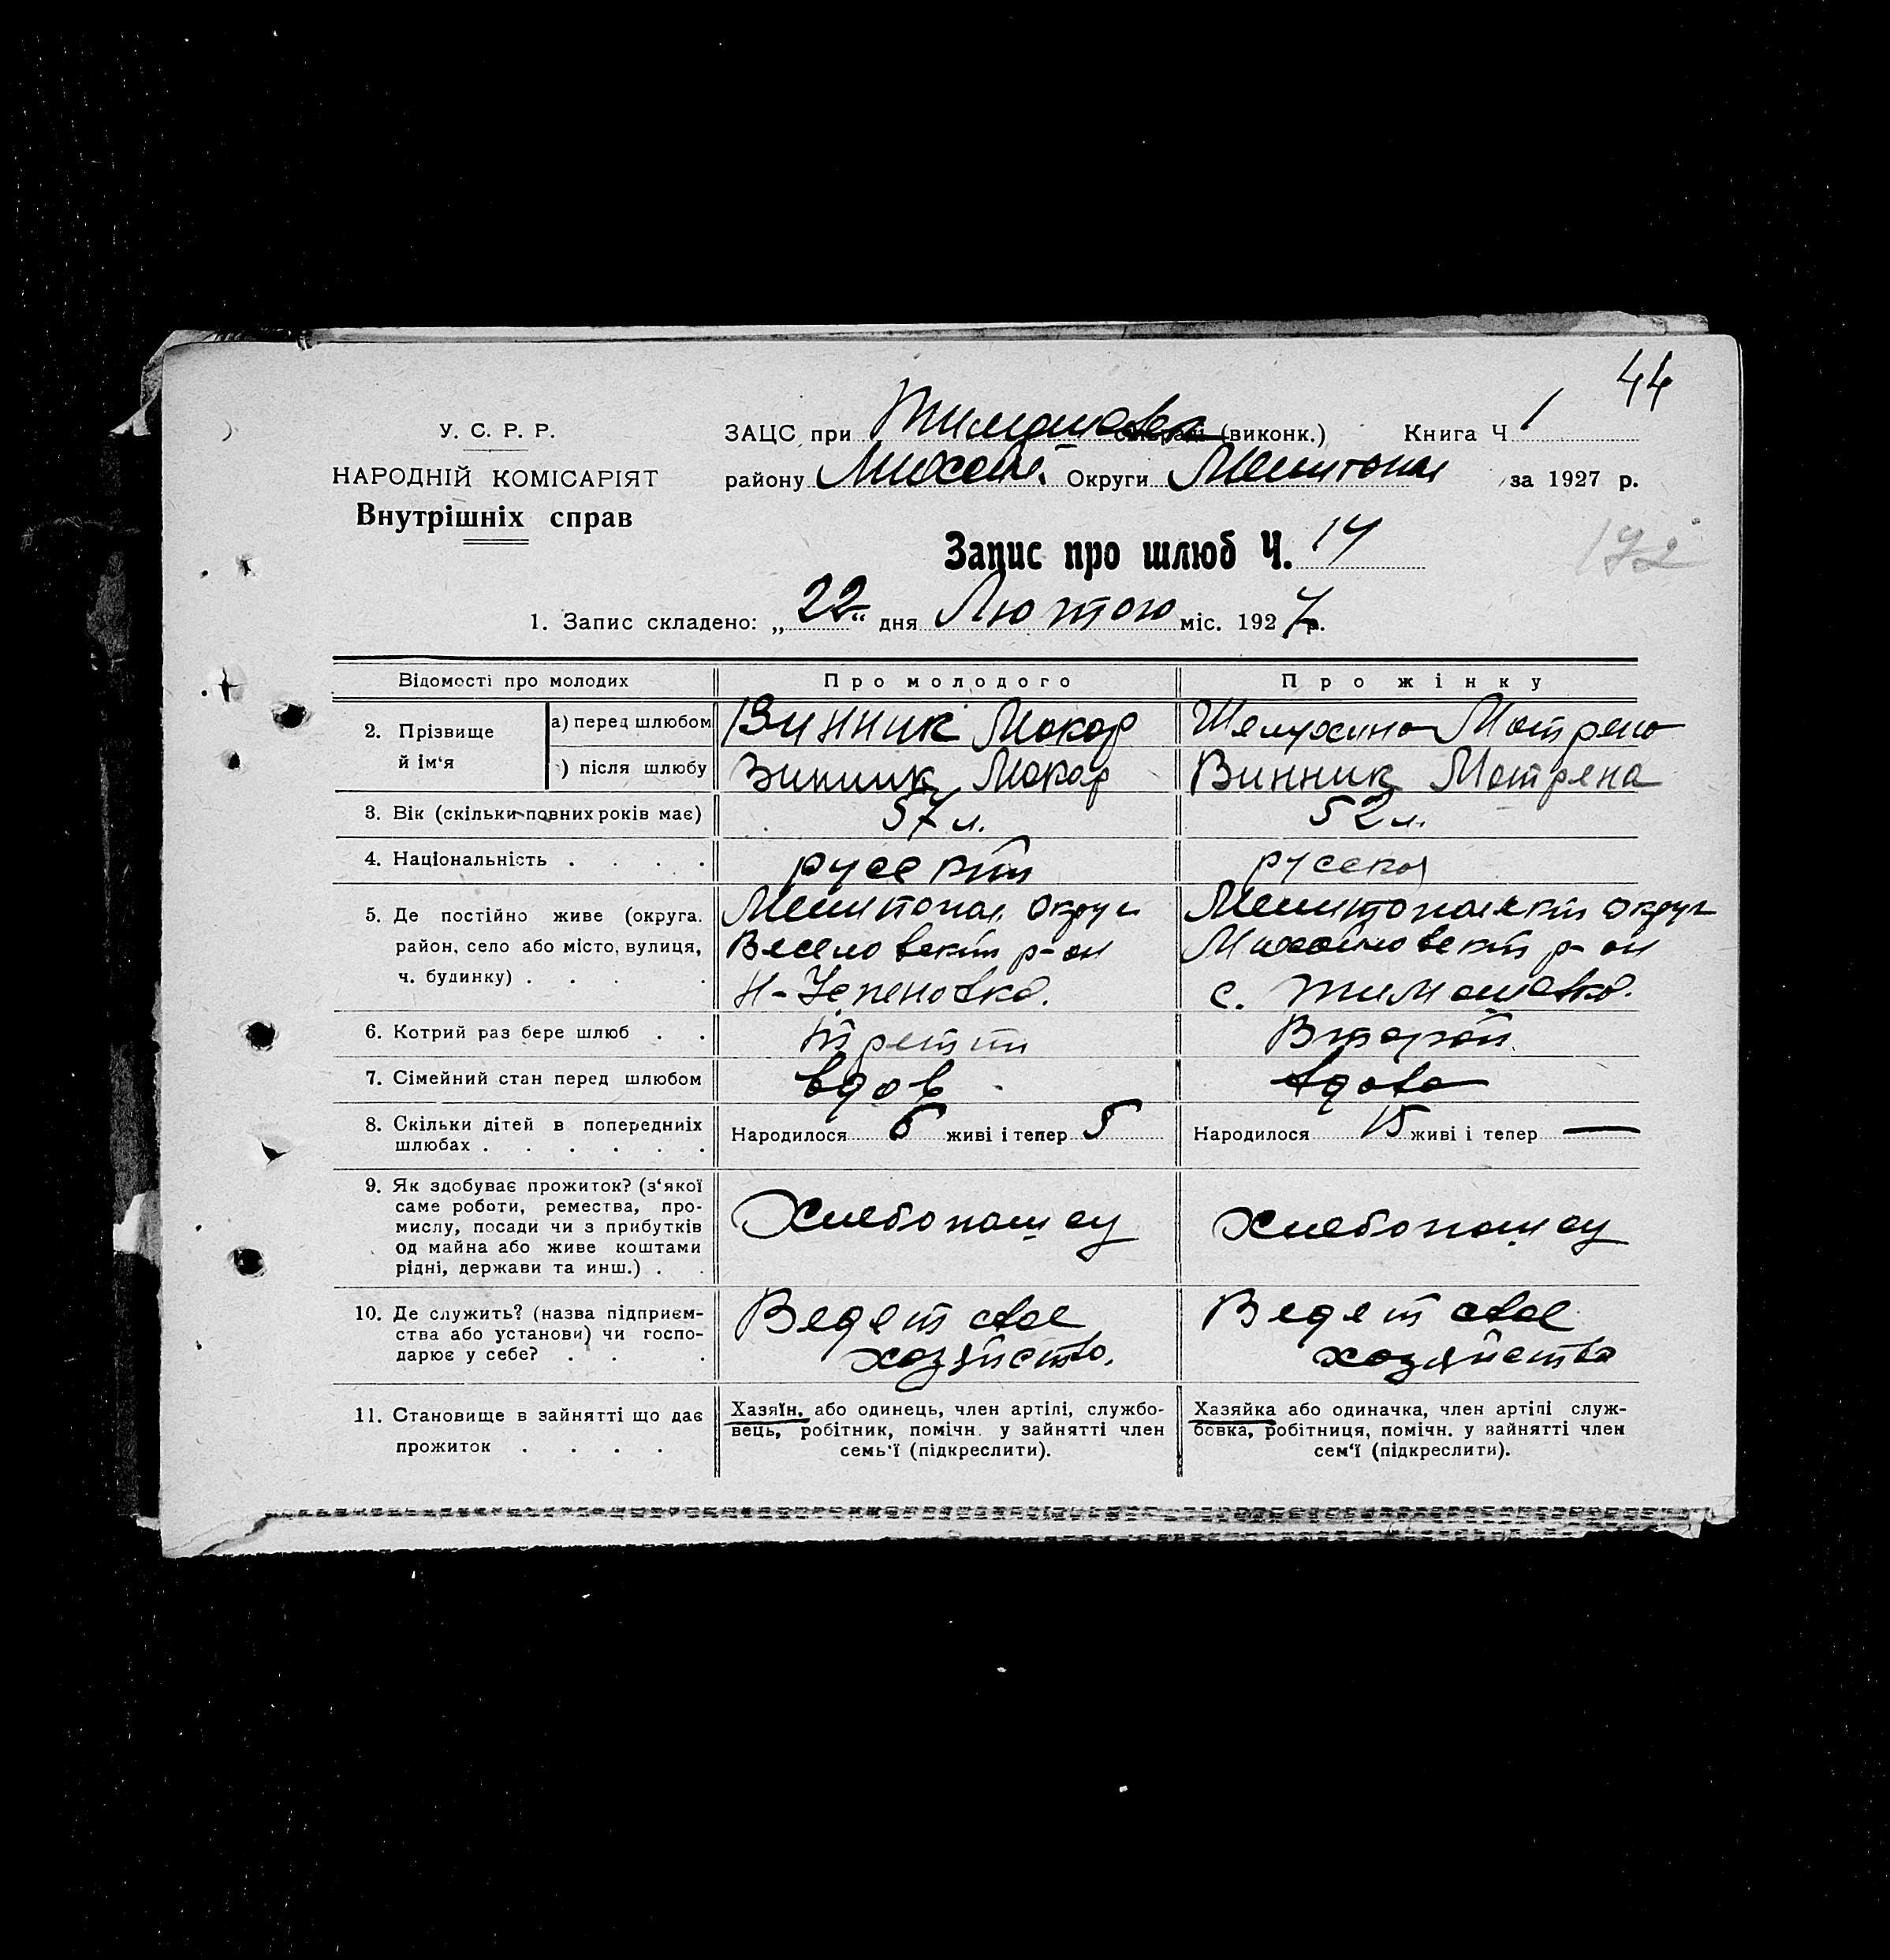 44
У. С. Р. Р.
НАРОДНІЙ КОМІСАРІЯТ
Внутрішніх справ
ЗАЦС при Тимошевка (виконк.) Книга Ч 1
району Михайл. Округи Мелитопол за 1927 р.
Запис про шлюб Ч. 14
172
1. Запис складено: „22“ дня Лютого міс. 1927 р.
Відомості про молодих Про молодого Про жінку
2. Прізвище й ім‘я
а) перед шлюбом Винник Макар Шелухина Мотрена
) після шлюбу Винник Макар Винник Мотряна
3. Вік (скільки повних років має) 57 л. 52 л.
4. Національність русский руская
5. Де постійно живе (округа, район, село або місто, вулиця, ч. будинку)
Мелитопол. округ
Веселовский р-он
Н-Успеновка.
Мелитопольский округ
Михайловский р-он
с. Тимошевка.
6. Котрий раз бере шлюб Третий Второй
7. Сімейний стан перед шлюбом вдов вдова
8. Скільки дітей в попередніх шлюбах
Народилося 6 живі і тепер 5
Народилося 15 живі і тепер —
9. Як здобуває прожиток? (з‘якої саме роботи, ремества, про-
мислу, посади чи з прибутків
од майна або живе коштами
рідні, держави та инш.)
Хлебопашец
Хлебопашец
10. Де служить? (назва підприєм-
ства або установи) чи госпо-
дарює у себе?
Ведет свое
хозяйство.
Ведет свое
хозяйство
11. Становище в зайнятті що дає
прожиток
Хазяїн, або одинець, член артілі, службо-
вець, робітник, помічн. у зайнятті член
семь‘ї (підкреслити).
Хазяйка або одиначка, член артілі служ-
бовка, робітниця, помічн. у зайнятті член
сем‘ї (підкреслити).